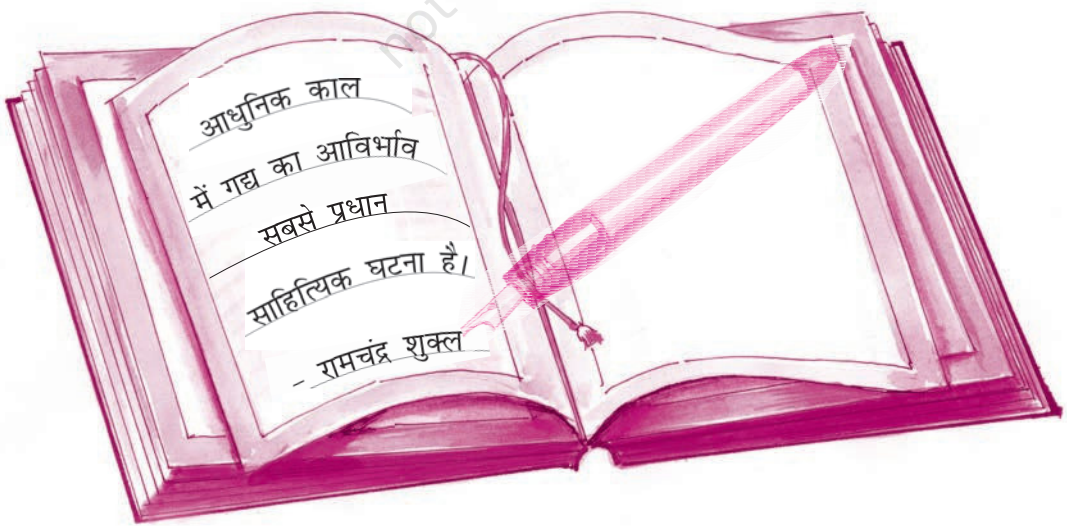 not
आधुनिक काल
में गद्य का आविर्भाव
सबसे प्रधान
साहित्यिक घटना है।
- रामचंद्र शुक्ल